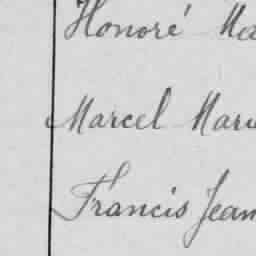 Honoré Ma
Marcel Mari
Francis Jean